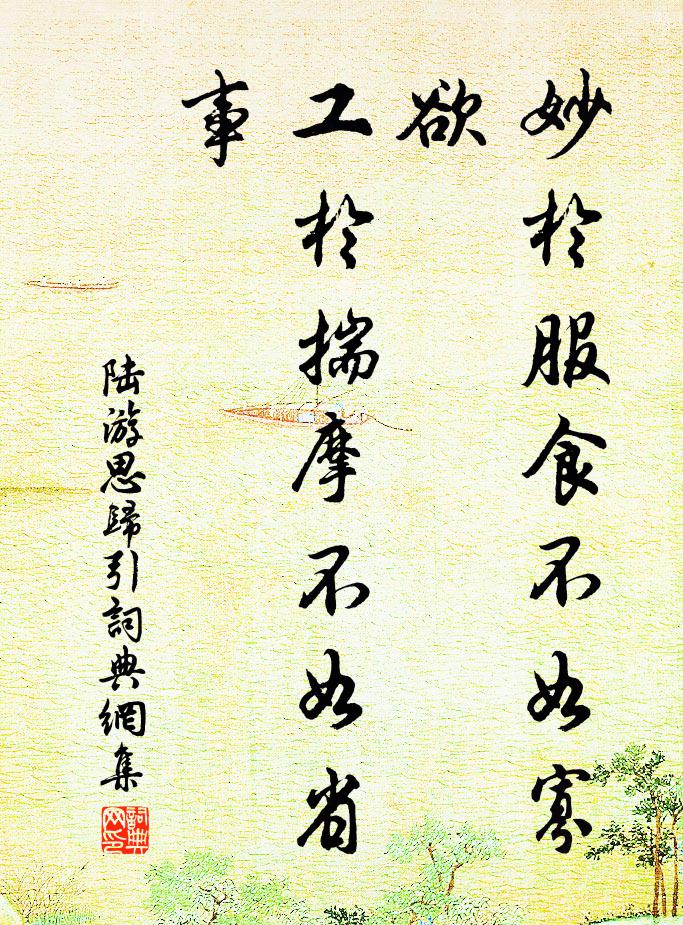 妙於服食不如寡
欲
工於揣摩不如省
事
陆游思歸引詞典網集
詞典
网印